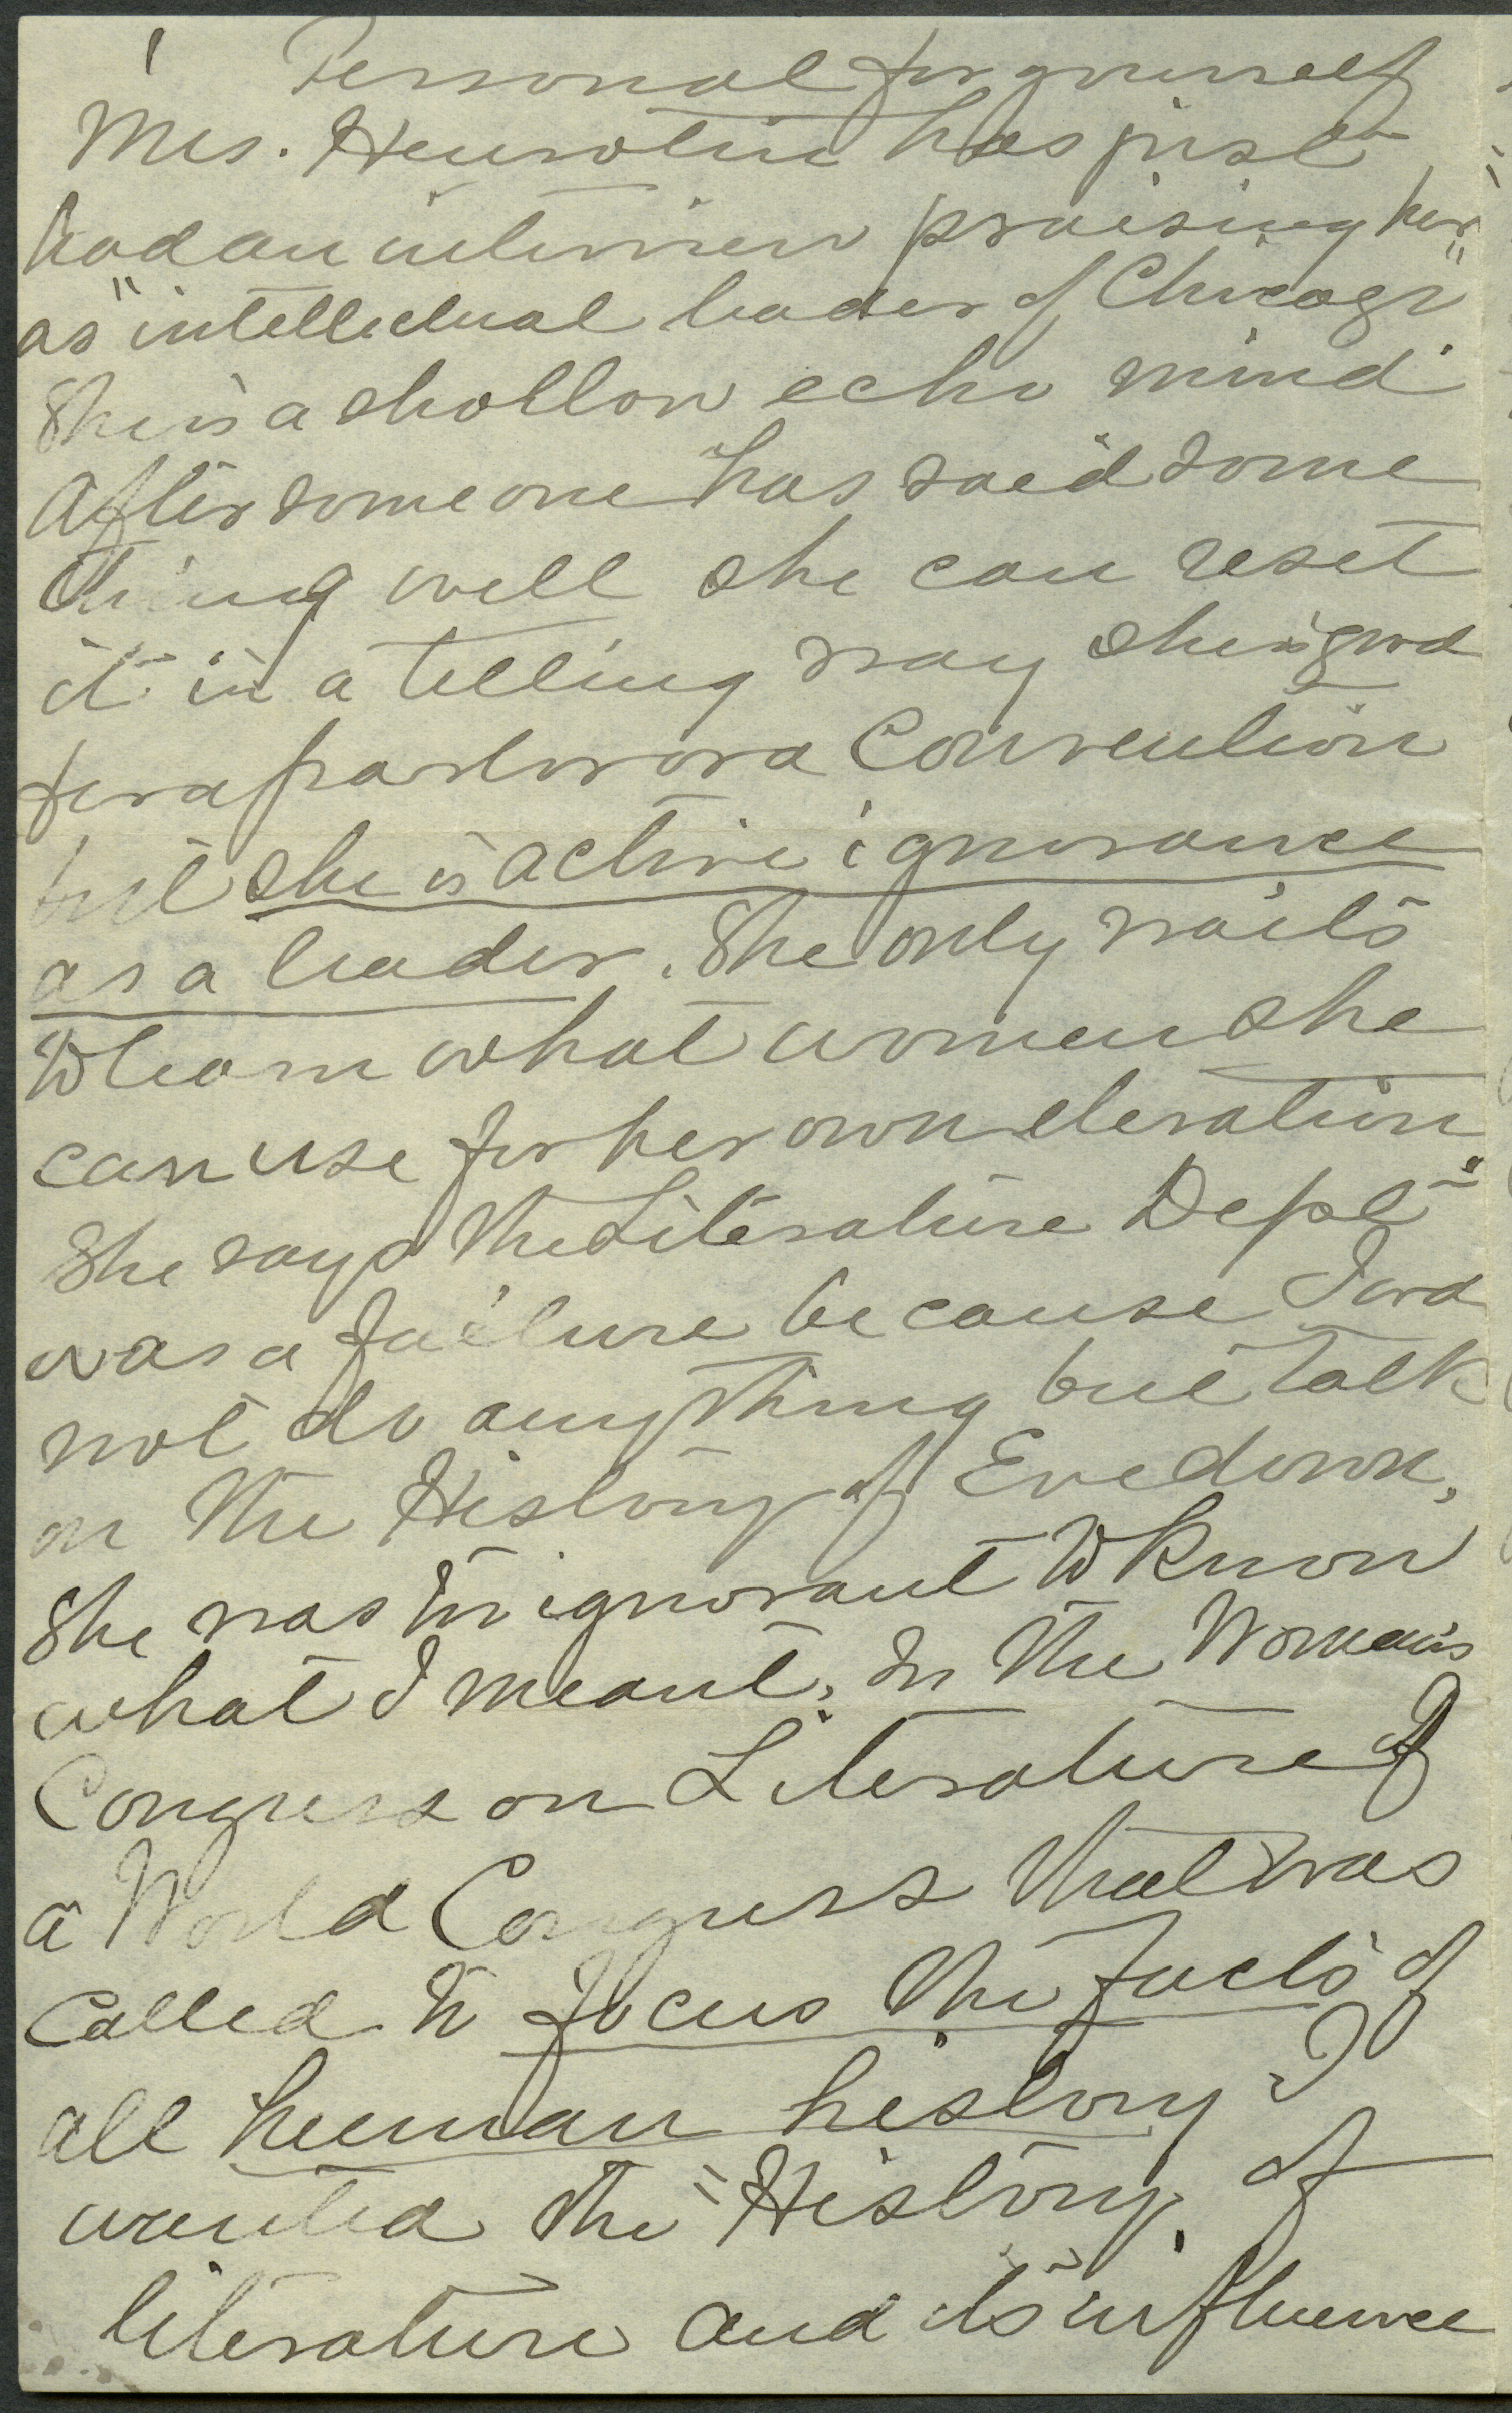 1 Personal for yourself
Mrs. Henrotin has just
had an interview praising her
as "intellectual leader of Chicago"
She is a shallow echo mind
After some one has said some
thing well she can reset
it in a telling way she is good
for a parlor or a Convention
but she is active ignorance
as a leader. She only waits
to learn what women she
can use for her own elevation.
She says the Literature Dept"
was a failure because I wd
not do anything but talk
on the History of Eve down,
She was too ignorant to know
what I meant, In the Woman's
Congress on Literature of
a World Congress that was
called to focus the facts of
all human history I
wanted the "History of
literature and its influence